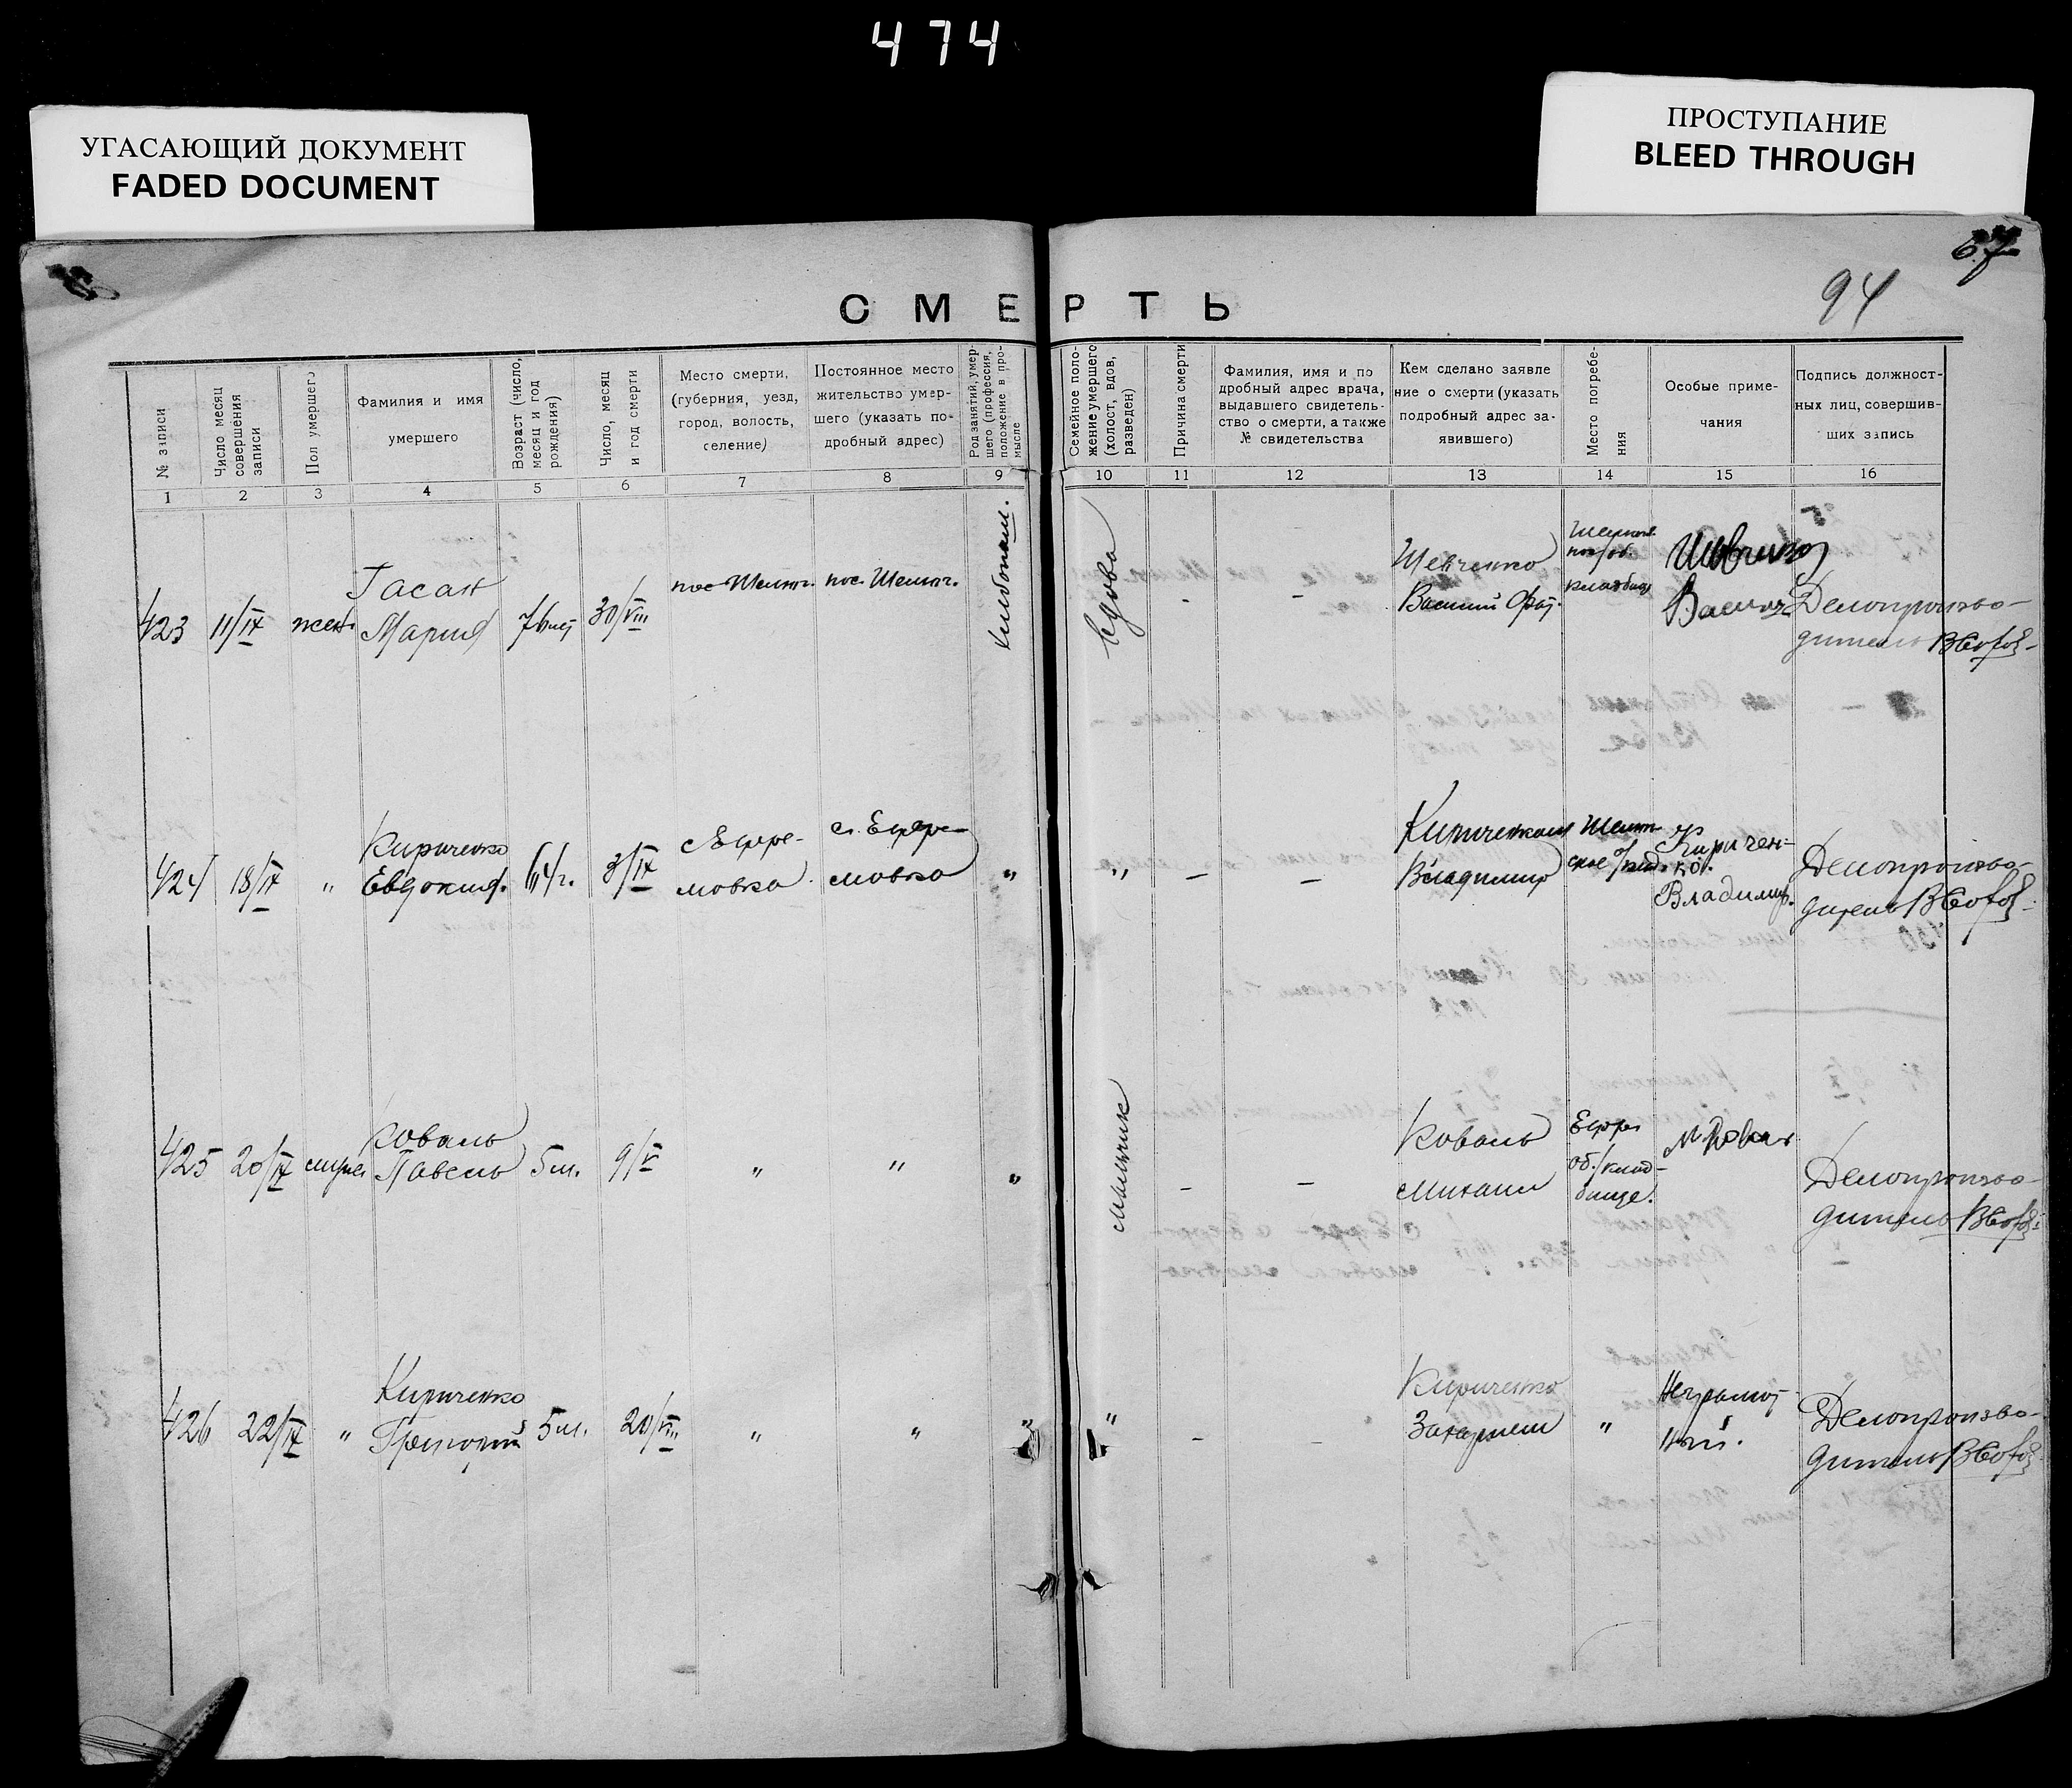 474
УГАСАЮЩИЙ ДОКУМЕНТ
FADED DOCUMENT
ПРОСТУПАНИЕ
BLEED THROUGH
67
94
СМЕРТЬ
№ записи
Число месяц
совершения
записи
Пол умершего
Фамилия и имя
умершего
Возраст (число,
месяц и год
рождения)
Число, месяц
и год смерти
Место смерти,
(губерния, уезд,
город, волость,
селение)
Постоянное место
жительство умер-
шего (указать по-
дробный адрес)
Род занятий, умер-
шего (профессия,
положение в про-
мысле
Семейное поло-
жение умершего
(холост, вдов,
разведен)
Причина смерти
Фамилия, имя и по
дробный адрес врача,
выдавшего свидетель-
ство о смерти, а также
№ свидетельства
Кем сделано заявле
ние о смерти (указать
подробный адрес за-
явившего)
Место погребе-
ния
Особые приме-
чания
Подпись должност-
ных лиц, совершив-
ших запись
1 2 3 4 5 6 7 8 9 10 11 12 13 14 15 16
423 11/IX жен.
Гасан
Мария
30/VIII
вдова
- -
Шевченко
Василий
Делопроизво-
дитель
424 18/IX "
Кириченко
Евдокия.
64 г.
3/IX
с Ефре-
мовка
с. Ефре-
мовка
" "
- -
Кириченко
Владимир
Киричен-
ко.
Владимир.
Делопроизво-
дитель
425 20/IX
Коваль
Павель
5 м.
9/V
" " "
мальчик
- -
Коваль
Михаил
Ефре
об./клад-
бище.
М Коваль
Делопроизво-
дитель
426 22/IX "
Кириченко
Григорий
5 м.
20/VIII
" " " "
- -
Кириченко
"
Неграмот
ный.
Делопроизво-
дитель